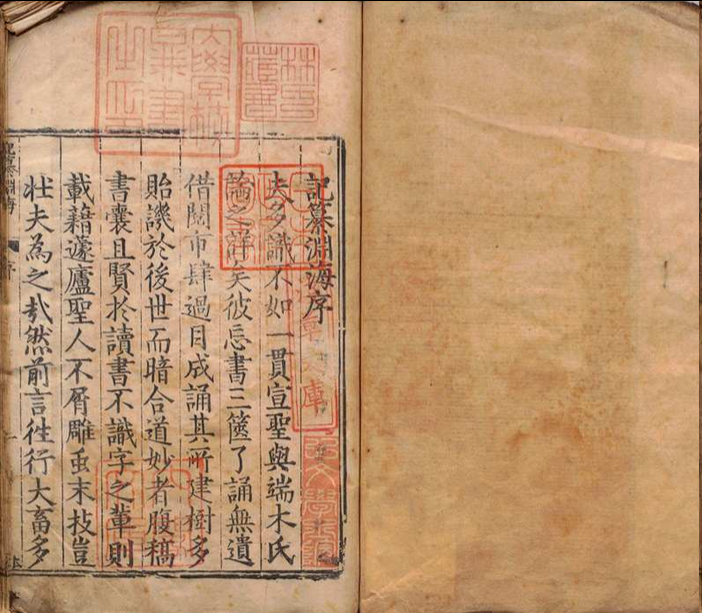 記纂淵海序
夫多識不如一貫宣聖與端木氏
論之詳矣彼忘書三篋了誦無遺
借閱市肆過目成誦其所建樹多
貽譏於後世而暗合道妙者腹稿
書囊且賢於讀書不識字之輩則
載籍蘧廬聖人不屑雕虫末技豈
壯夫為之哉然前言徃行大畜多
記纂淵海
序
林氏
庫